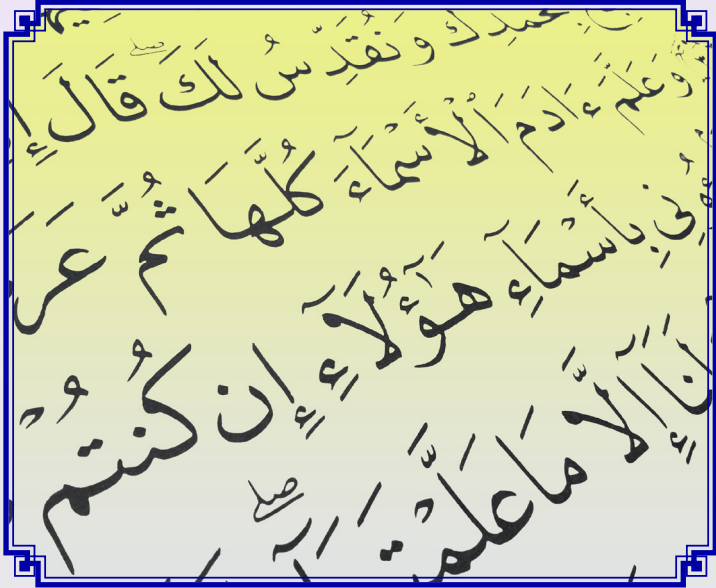 بِحَمْدِكَ وَنُقَدِّسُ لَكَ ۖ قَالَ
وَعَلَّمَ ءَادَمَ ٱلْأَسْمَآءَ كُلَّهَا ثُمَّ
بِأَسْمَآءِ هَٰٓؤُلَآءِ إِن كُنتُمْ
إِلَّا مَا عَلَّمْتَنَآ ۖ